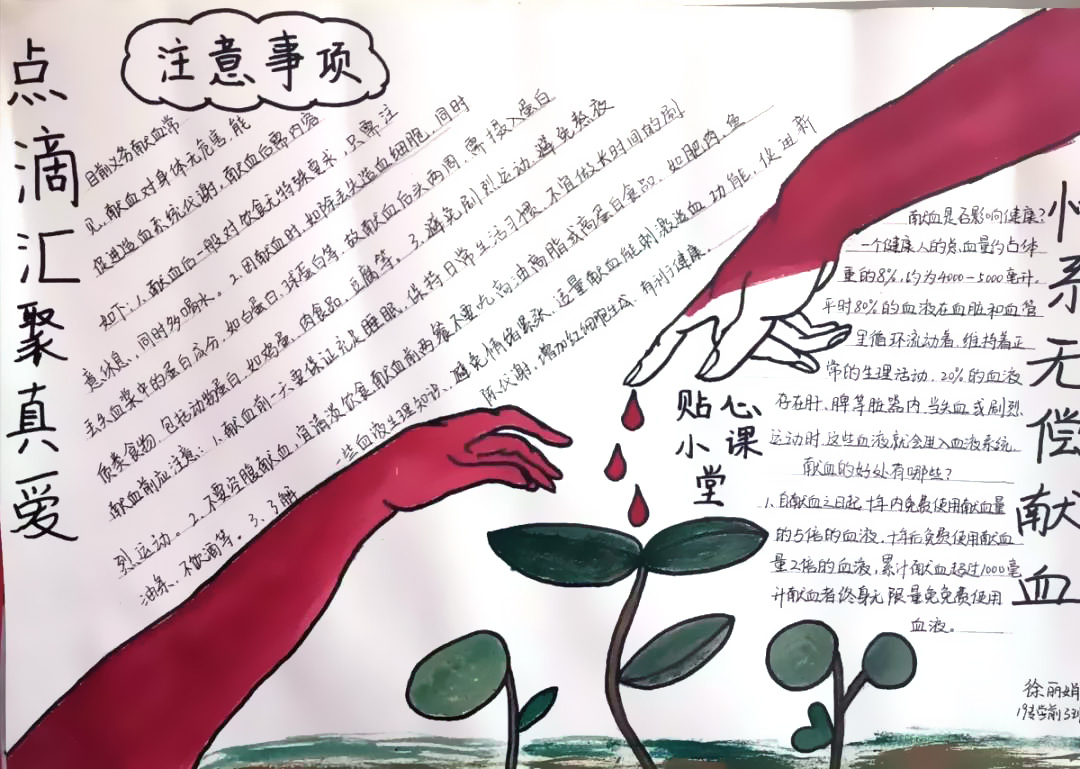 点滴汇聚真爱
注意事项
目前义务献血常
见，献血对身体无危害，能
促进造血系统代谢，献血后需内容
如下：1、献血后一般对饮食无特殊要求，只需注
意休息、同时多喝水。2、因献血时，如除丢失造血细胞，同时
丢失血浆中的蛋白成分，如白蛋白、球蛋白等，故献血后头两周，需摄入蛋白
质类食物，包括动物蛋白，如鸡蛋、肉食品、豆腐等。3、避免剧烈运动，避免熬夜
献血前应注意：1、献血前一天要保证充足睡眠，保持日常生活习惯，不宜做长时间的剧
烈运动。2、不要空腹献血，宜清淡饮食，献血前两餐不要吃高油高脂或高蛋白食品，如肥肉、鱼
油条、不饮酒等。3、了解一些血液生理知识，避免情绪紧张，适量献血能刺激造血功能，促进新
陈代谢，增加红细胞生成，有利于健康。
贴心
小课
堂
心系无偿献血
献血是否影响健康？
一个健康人的总血量约占体
重的8%，约为4000-5000毫升。
平时80%的血液在血脏和血管
里循环流动着，维持着正
常的生理活动，20%的血液
存在肝、脾等脏器内，当失血或剧烈
运动时，这些血液就会进入血液系统。
献血的好处有哪些？
1、自献血之日起，十年内免费使用献血量
的5倍的血液，十年后免费使用献血
量2倍的血液，累计献血超过1000毫
升献血者终身无限量免免费使用
血液。
徐丽娟
19专学前3班